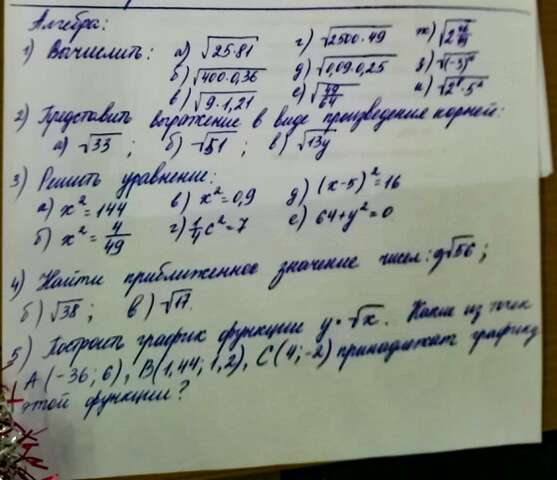 Алгебра:
1) Вычислить: а) √25·81 г) √2500·49 ж)
б) √400·0,36 д) √0,09·0,25 з)
в) √9·1,21 е) √49/64 и)
2) Представить выражение в виде произведения корней:
а) √33; б) √51; в) √13y
3) Решить уравнение:
а) x²=144 в) x²=0,9 д) (x-5)²=16
б) x²=4/49 г) 1/4 c²=7 е) 64+y²=0
4) Найти приближенное значение чисел: а) √56;
б) √38; в) √17.
5) Построить график функции y=√x. Какие из точек
A(-36; 6), B(1,44; 1,2), C(4; -2) принадлежат графику
этой функции?